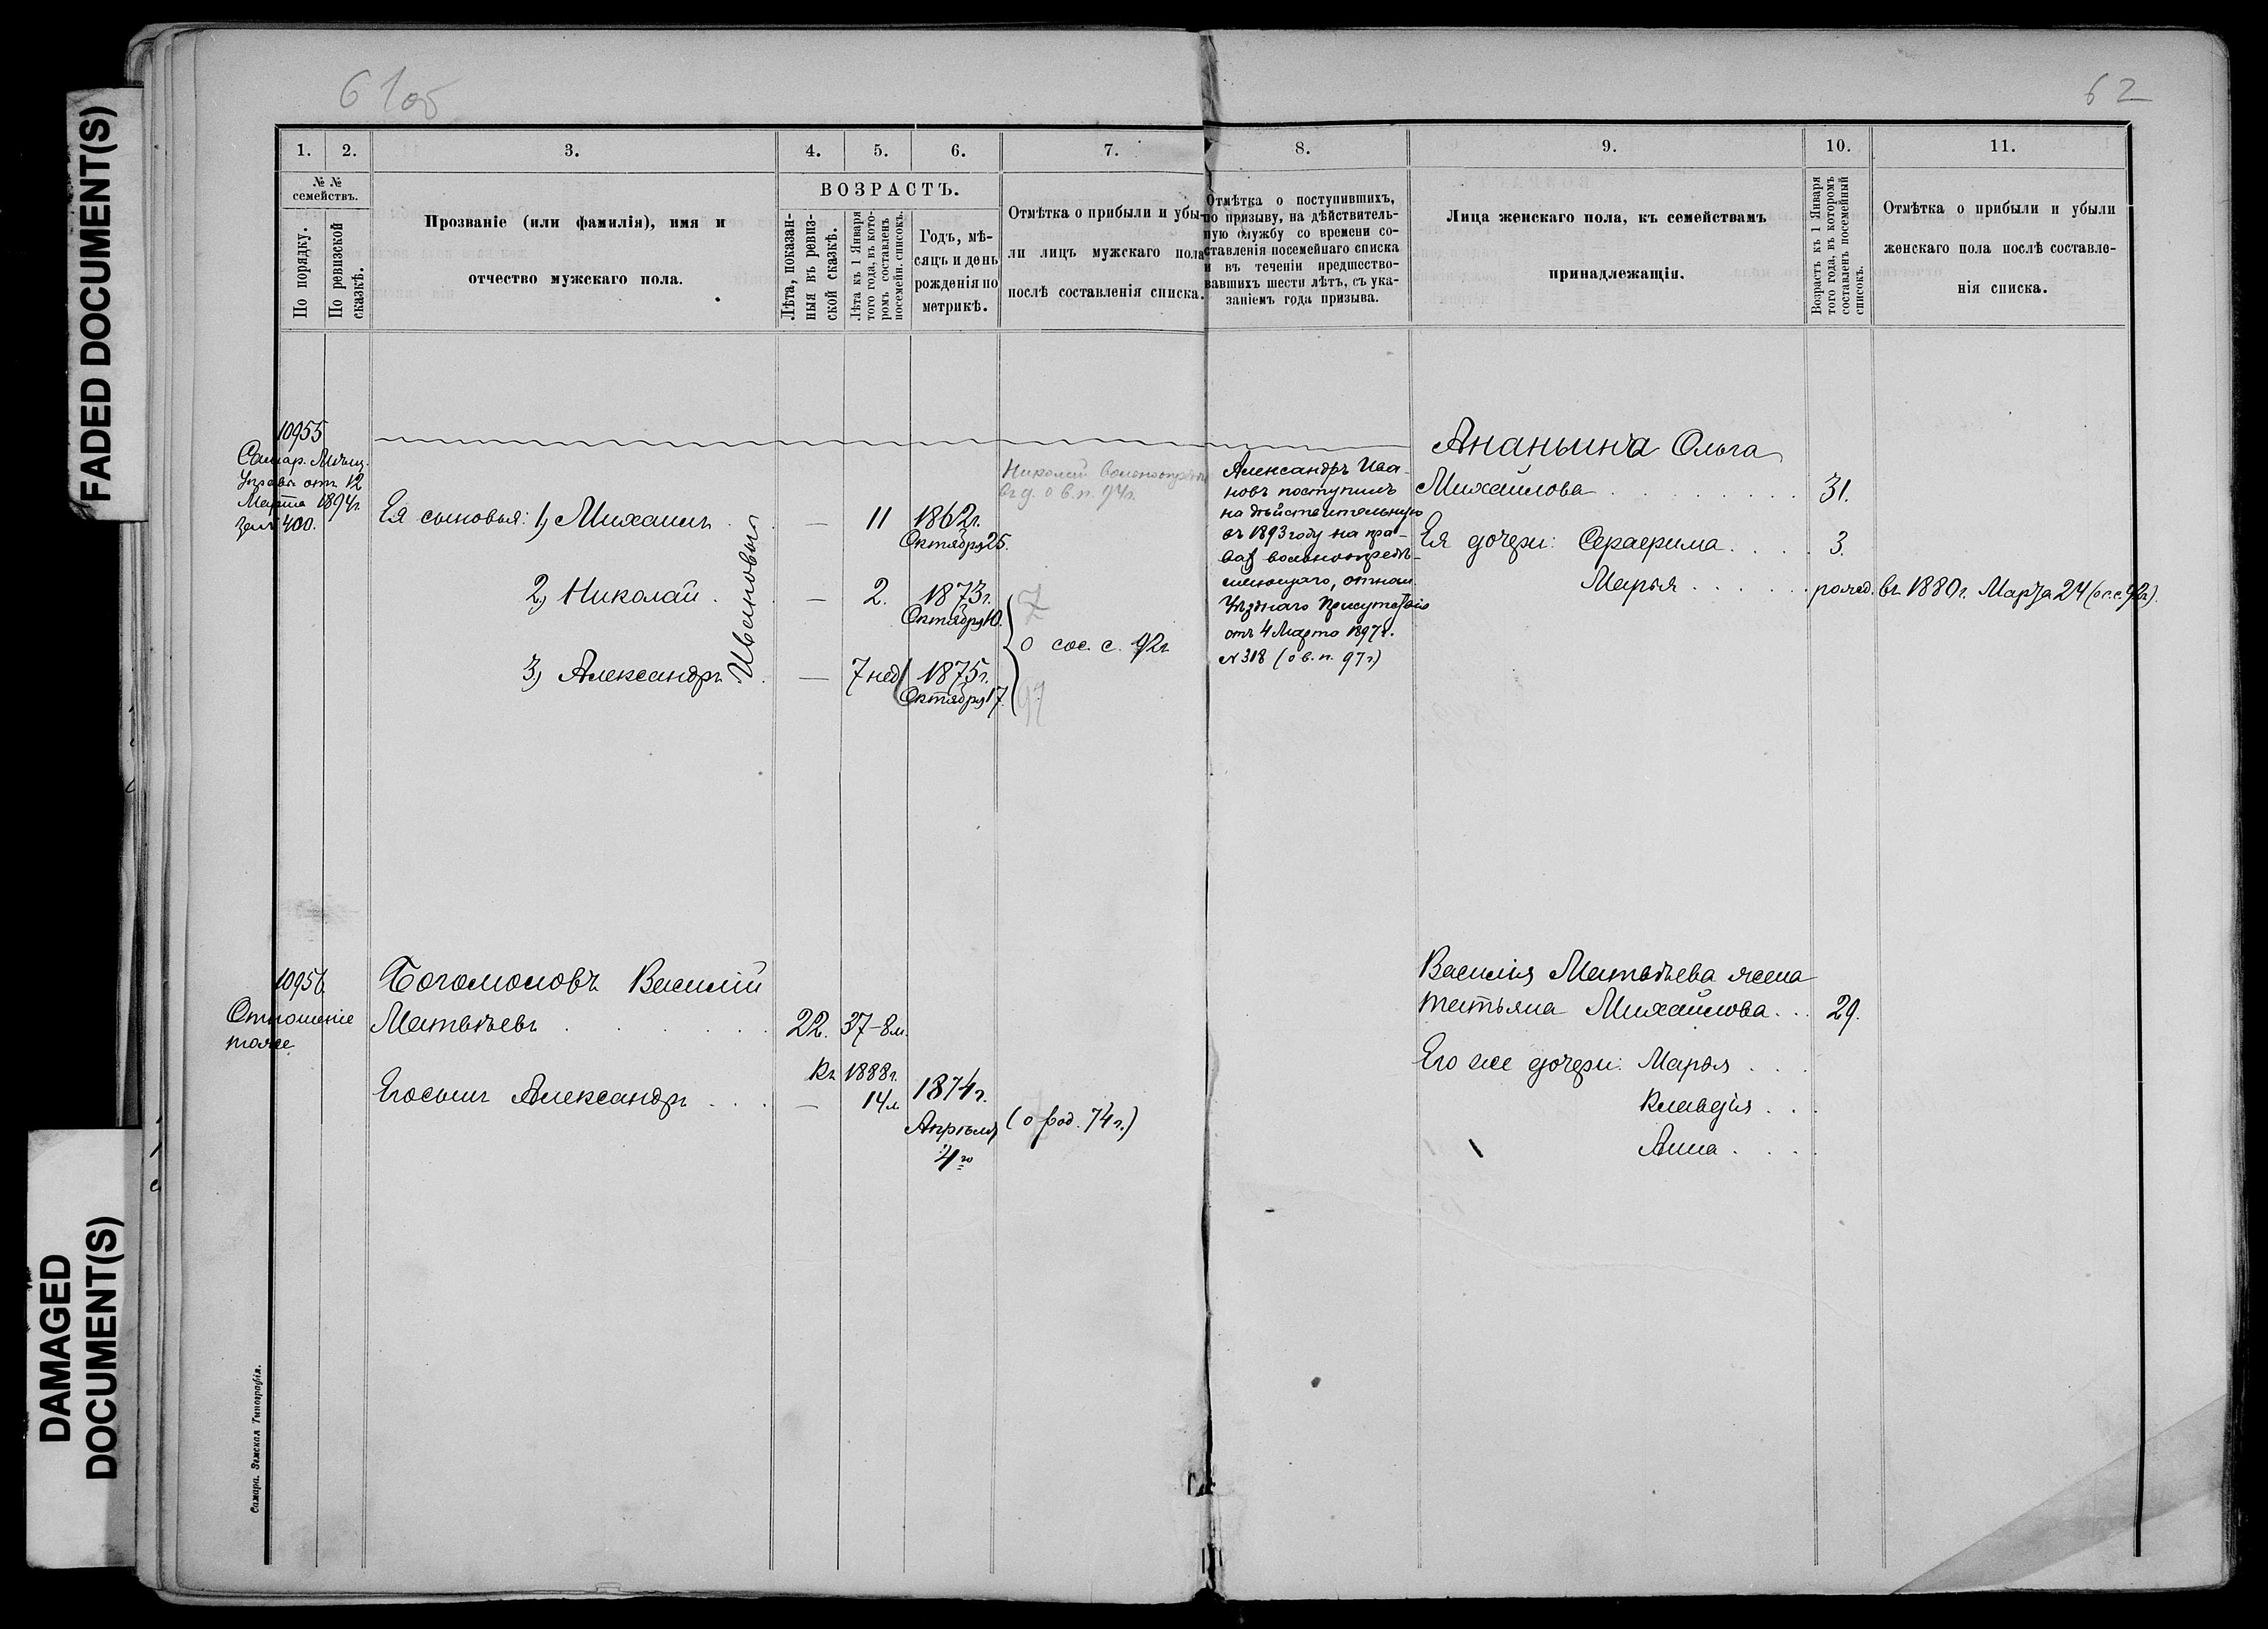 FADED DOCUMENT(S)
DAMAGED
DOCUMENT(S)
61об
62
1.
2.
3.
4.
5.
6.
7.
8.
9.
10.
11.
№ №
семействъ.
По порядку.
По ревизской
сказкѣ.
Прозваніе (или фамилія), имя и
отчество мужскаго пола.
ВОЗРАСТЪ.
Лѣта, показан-
ныя въ ревиз-
ской сказкѣ.
Лѣта къ 1 Января
того года, въ кото-
ромъ составленъ
посемейн. списокъ.
Годъ, мѣ-
сяцъ и день
рожденія по
метрикѣ.
Отмѣтка о прибыли и убы-
ли лицъ мужскаго пола
послѣ составленія списка.
Отмѣтка о поступившихъ,
по призыву, на дѣйствитель-
ную службу со времени со-
ставленія посемейнаго списка
и въ теченіи предшество-
вавшихъ шести лѣтъ, съ ука-
заніемъ года призыва.
Лица женскаго пола, къ семействамъ
принадлежащія.
Возрастъ къ 1 Января
того года, въ которомъ
составленъ посемейный
списокъ.
Отмѣтка о прибыли и убыли
женскаго пола послѣ составле-
нія списка.
10955
Самар. Мѣщ.
Управы отъ 12
Марта 1894г
за № 400.
Ея сыновья: 1) Михаилъ . — 11 1862г.
Октября 25.
2) Николай . — 2. 1873г.
Октября 10.
3) Александръ . — 7 нед 1875г.
Октября 17.
Ивановы
Николай вольноопред
в.п. 94г.
7
о сос. с. 92г.
97
Александръ Ива-
новъ поступилъ
на дѣйствительную
въ 1893 году на пра-
вах вольноопредѣ-
ляющаго, отнош.
Уѣзднаго Присутствія
отъ 4 Марта 1897г.
№ 318 (о в. п. 97г)
Ананьина Ольга
Михайлова . . . . 31.
Ея дочери: Серафима . . . . 3.
Марья . . . . . . рожд. въ 1880г. Марта 24 (о с.с. 92г).
10956.
Отношеніе
тоже
Богомоловъ Василій
Матвѣевъ . . . . 22. 37-8м.
Его сынъ Александръ . . . —
Къ 1888г.
14л
1874г.
Апрѣля
4го
(о род. 74г.)
Василія Матвѣева жена
Татьяна Михайлова . . . 29.
Его же дочери: Марья . . .
Клавдія . . .
Анна . . . .
Самара. Земская Типографія.